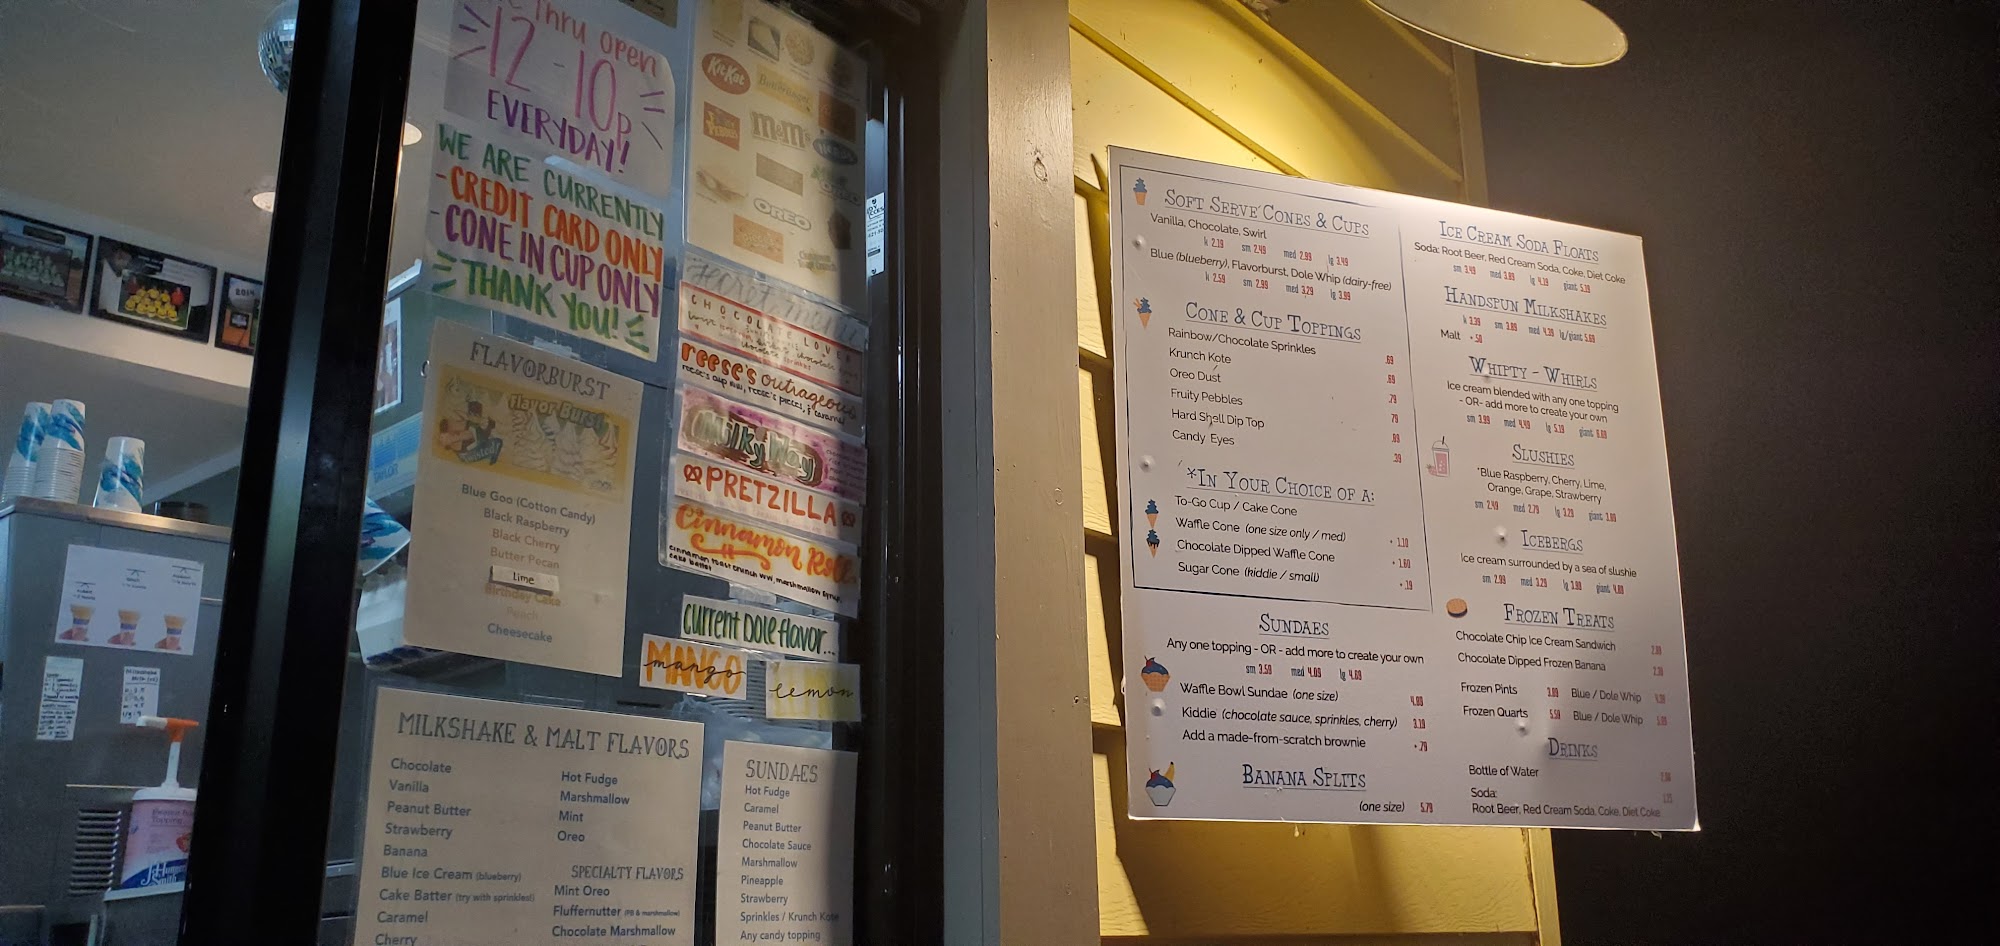 Thru open
12-10p
EVERYDAY!
WE ARE CURRENTLY
-CREDIT CARD ONLY
-CONE IN CUP ONLY
THANK YOU!
KitKat
Butterfinger
m&m's
OREO
secret menu
CHOCOLATE LOVER
reese's outrageous
MilkyWay
PRETZILLA
Cinnamon Roll
current Dole flavor...
MANGO
mango
lemon
FLAVORBURST
Flavor Burst
Blue Goo (Cotton Candy)
Black Raspberry
Black Cherry
Butter Pecan
Lime
Birthday Cake
Peach
Cheesecake
MILKSHAKE & MALT FLAVORS
Chocolate
Vanilla
Peanut Butter
Strawberry
Banana
Blue Ice Cream (blueberry)
Cake Batter (try with sprinkles!)
Caramel
Cherry
Hot Fudge
Marshmallow
Mint
Oreo
SPECIALTY FLAVORS
Mint Oreo
Fluffernutter (PB & marshmallow)
Chocolate Marshmallow
SUNDAES
Hot Fudge
Caramel
Peanut Butter
Chocolate Sauce
Marshmallow
Pineapple
Strawberry
Sprinkles / Krunch Kote
Any candy topping
SOFT SERVE CONES & CUPS
Vanilla, Chocolate, Swirl
k 2.19 sm 2.49 med 2.99 lg 3.49
Blue (blueberry), Flavorburst, Dole Whip (dairy-free)
k 2.59 sm 2.99 med 3.29 lg 3.99
CONE & CUP TOPPINGS
Rainbow/Chocolate Sprinkles .69
Krunch Kote .69
Oreo Dust .79
Fruity Pebbles 79
Hard Shell Dip Top .89
Candy Eyes .39
*IN YOUR CHOICE OF A:
To-Go Cup / Cake Cone
Waffle Cone (one size only / med) + 1.10
Chocolate Dipped Waffle Cone + 1.60
Sugar Cone (kiddie / small) + .19
SUNDAES
Any one topping - OR - add more to create your own
sm 3.59 med 4.09 lg 4.69
Waffle Bowl Sundae (one size) 4.99
Kiddie (chocolate sauce, sprinkles, cherry) 3.19
Add a made-from-scratch brownie + .79
BANANA SPLITS
(one size) 5.79
ICE CREAM SODA FLOATS
Soda: Root Beer, Red Cream Soda, Coke, Diet Coke
sm 3.49 med 3.89 lg 4.39 giant 5.39
HANDSPUN MILKSHAKES
k 3.39 sm 3.89 med 4.39 lg/giant 5.69
Malt + .50
WHIPTY - WHIRLS
Ice cream blended with any one topping
- OR- add more to create your own
sm 3.99 med 4.49 lg 5.19 giant 6.69
SLUSHIES
*Blue Raspberry, Cherry, Lime,
Orange, Grape, Strawberry
sm 2.49 med 2.79 lg 3.29 giant 3.89
ICEBERGS
Ice cream surrounded by a sea of slushie
sm 2.99 med 3.29 lg 3.99 giant 4.69
FROZEN TREATS
Chocolate Chip Ice Cream Sandwich
Chocolate Dipped Frozen Banana
Frozen Pints 3.89 Blue / Dole Whip
Frozen Quarts 5.59 Blue / Dole Whip
DRINKS
Bottle of Water
Soda:
Root Beer, Red Cream Soda, Coke, Diet Coke